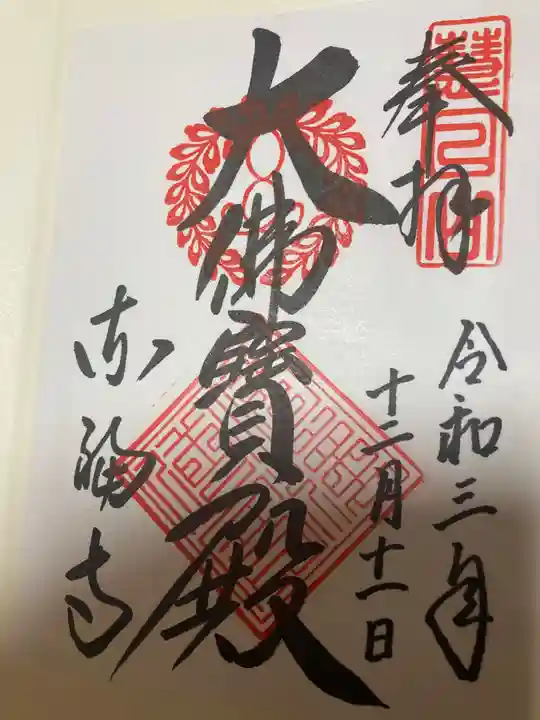 奉拝
令和三年
十二月十一日
大佛寳殿
東福寺